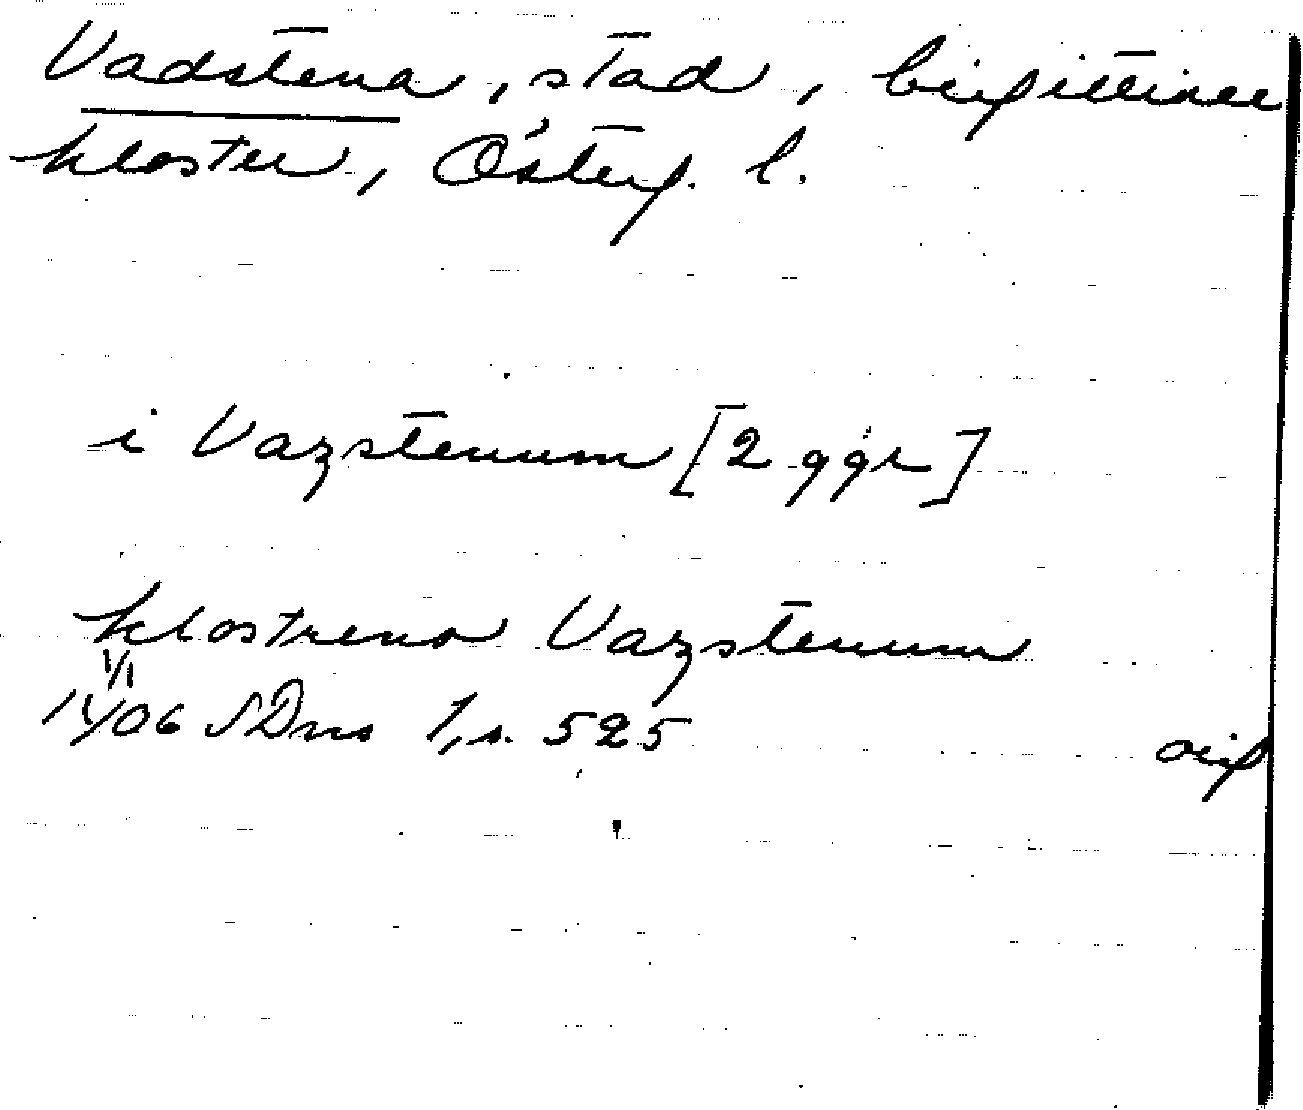 Vadstena, stad, birgittiner
kloster, Österg. l.
i Vazstenum [2 ggr]
klostreno Vazstenum
1/1
1406 SDns 1, s. 525 orig